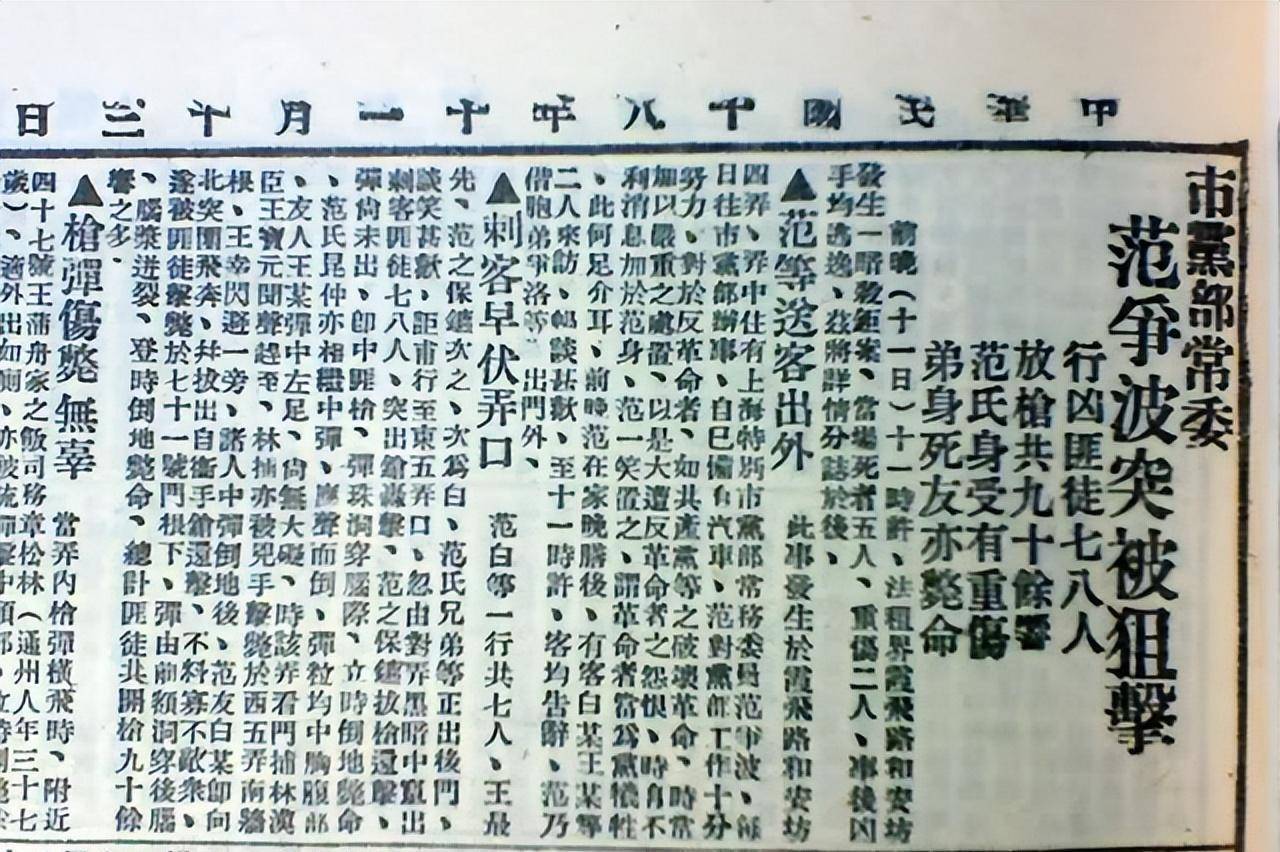 中華民國十八年十一月十三日
市黨部常委
范爭波突被狙擊
行凶匪徒七八人
放槍共九十餘響
范氏身受有重傷
弟身死友亦斃命
前晚（十一日）十一時許、法租界霞飛路和安坊
發生一暗殺鉅案、當場死者五人、重傷二人、事後凶
手均逃逸、茲將詳情分誌於後、
▲范等送客出外 此事發生於霞飛路和安坊
四弄、弄中住有上海特別市黨部常務委員范爭波、每
日往市黨部辦事、自己備有汽車、范對黨部工作十分
努力、對於反革命者、如共產黨等之破壞革命、時常
加以嚴重之處置、以是大遭反革命者之怨恨、時有不
利消息加於范身、范一笑置之、謂革命者當爲黨犧牲
、此何足介耳、前晚范在家晚膳後、有客白某王某等
二人來訪、暢談甚歡、至十一時許、客均告辭、范乃
偕胞弟爭洛等、出門外、
▲刺客早伏弄口 范白等一行共七人、王最
先、范之保鑣次之、次爲白、范氏兄弟等正出後門、
談笑甚歡、詎甫行至東五弄口、忽由對弄黑暗中竄出
刺客匪徒七八人、突出鎗轟擊、范之保鑣拔槍還擊、
彈尙未出、卽中匪槍、彈珠洞穿腦際、立時倒地斃命
、范氏昆仲亦相繼中彈、應聲而倒、彈粒均中胸腹部
、友人王某彈中左足、尙無大礙、時該弄看門捕林漢
臣王寶元聞聲趕至、林捕亦被兇手擊斃於西五弄南牆
根、王幸閃避一旁、諸人中彈倒地後、范友白某卽向
北突圍飛奔、幷拔出自衞手鎗還擊、不料寡不敵衆、
遂被匪徒擊斃於七十一號門根下、彈由前額洞穿後腦
、腦漿迸裂、登時倒地斃命、總計匪徒共開槍九十餘
響之多、
▲槍彈傷斃無辜 當弄內槍彈橫飛時、附近
四十七號王蒲舟家之飯司務章松林（通州人年三十七
歲）、適外出如厠、亦被流彈擊中頭部、